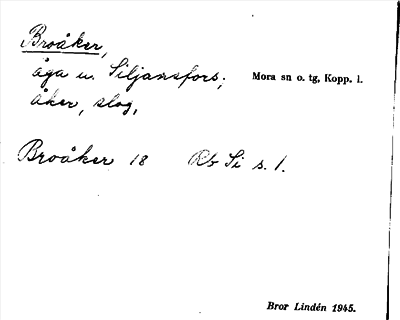 Broåker,
äga u. Siljansfors; Mora sn o. tg, Kopp. l.
åker, slog,
Broåker 18 Rb Si s. 1.
Bror Lindén 1945.